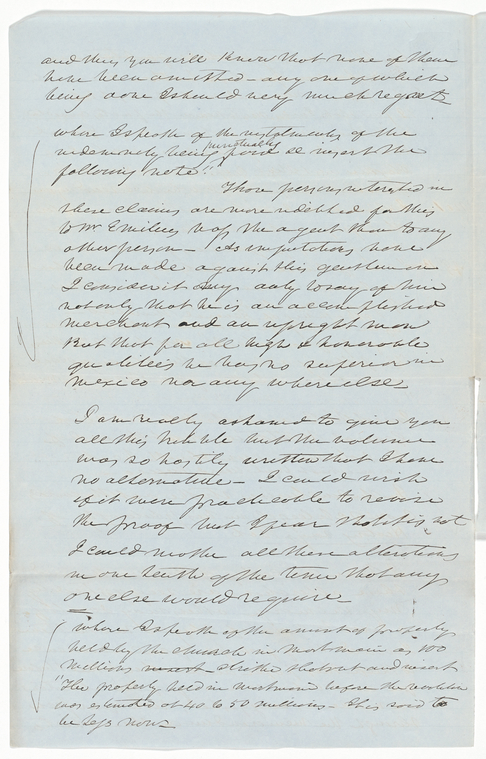 and thus you will know that none of them
have been omitted - any one of which
being done I should very much regret -
where I speak of the instalments of the
indemnity being punctually paid so insert the
following note "
Those persons interested in
these claims are more indebted for this
to Mr Emilien Voss the agent than to any
other person - As imputations have
been made against this gentleman
I consider it duty to say of him
not only that he is an accomplished
merchant and an upright man
But that for all high & honorable
qualities he has no superior in
Mexico nor any where else -
I am really ashamed to give you
all this trouble but the volume
was so hastily written that I have
no alternative - I could wish
if it were practicable to revise
the proof but I fear that it is not
I could make all these alterations
in one tenth of the time that any
one else would require -
where I speak of the amount of property
held by the church in Mortmain as 100
millions strike that out and insert
"The property held in mortmain before the revolution
was estimated at 40 to 50 millions - This said to
be less now -